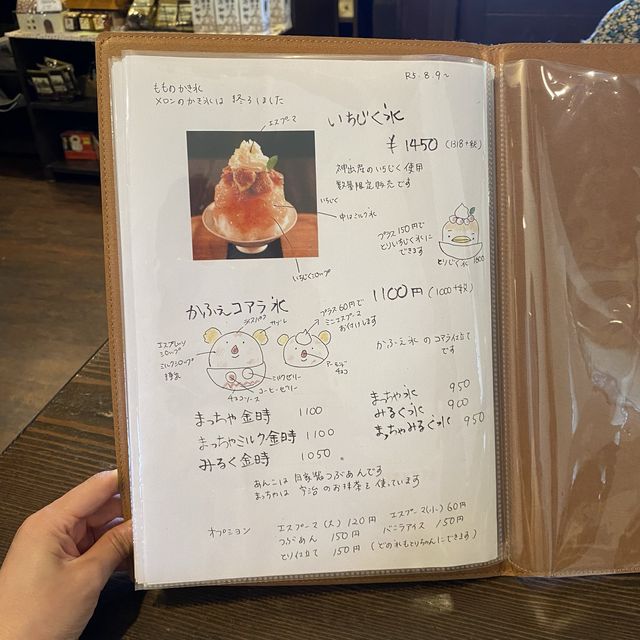 R5.8.9~
もものかき氷
メロンのかき氷は 終了しました
エスプーマ
いちじく氷
¥1450 (1318+税)
神出産のいちじく使用
数量限定販売です
いちじく
中はミルク氷
いちじくシロップ
プラス150円で
とりいちじく氷に
できます
とりじく氷 1600
かふぇコアラ氷
1100円 (1000+税)
プラス60円で
ミニエスプーマ
お付けします
サブレ
エスプレッソ
シロップ
ミルクシロップ
アーモンド
チョコ
ミルクゼリー
コーヒーゼリー
チョコソース
かふぇ氷 のコアラ仕立て
です
まっちゃ金時 1100
まっちゃミルク金時 1100
みるく金時 1050
まっちゃ氷 950
みるく氷 900
まっちゃみるく氷 950
あんこは 自家製つぶあんです
まっちゃは 宇治のお抹茶を使っています
オプション
エスプーマ(大) 120円
エスプーマ(小) 60円
つぶあん 150円
バニラアイス 150円
とり仕立て 150円 (どの氷もとりちゃんにできます)